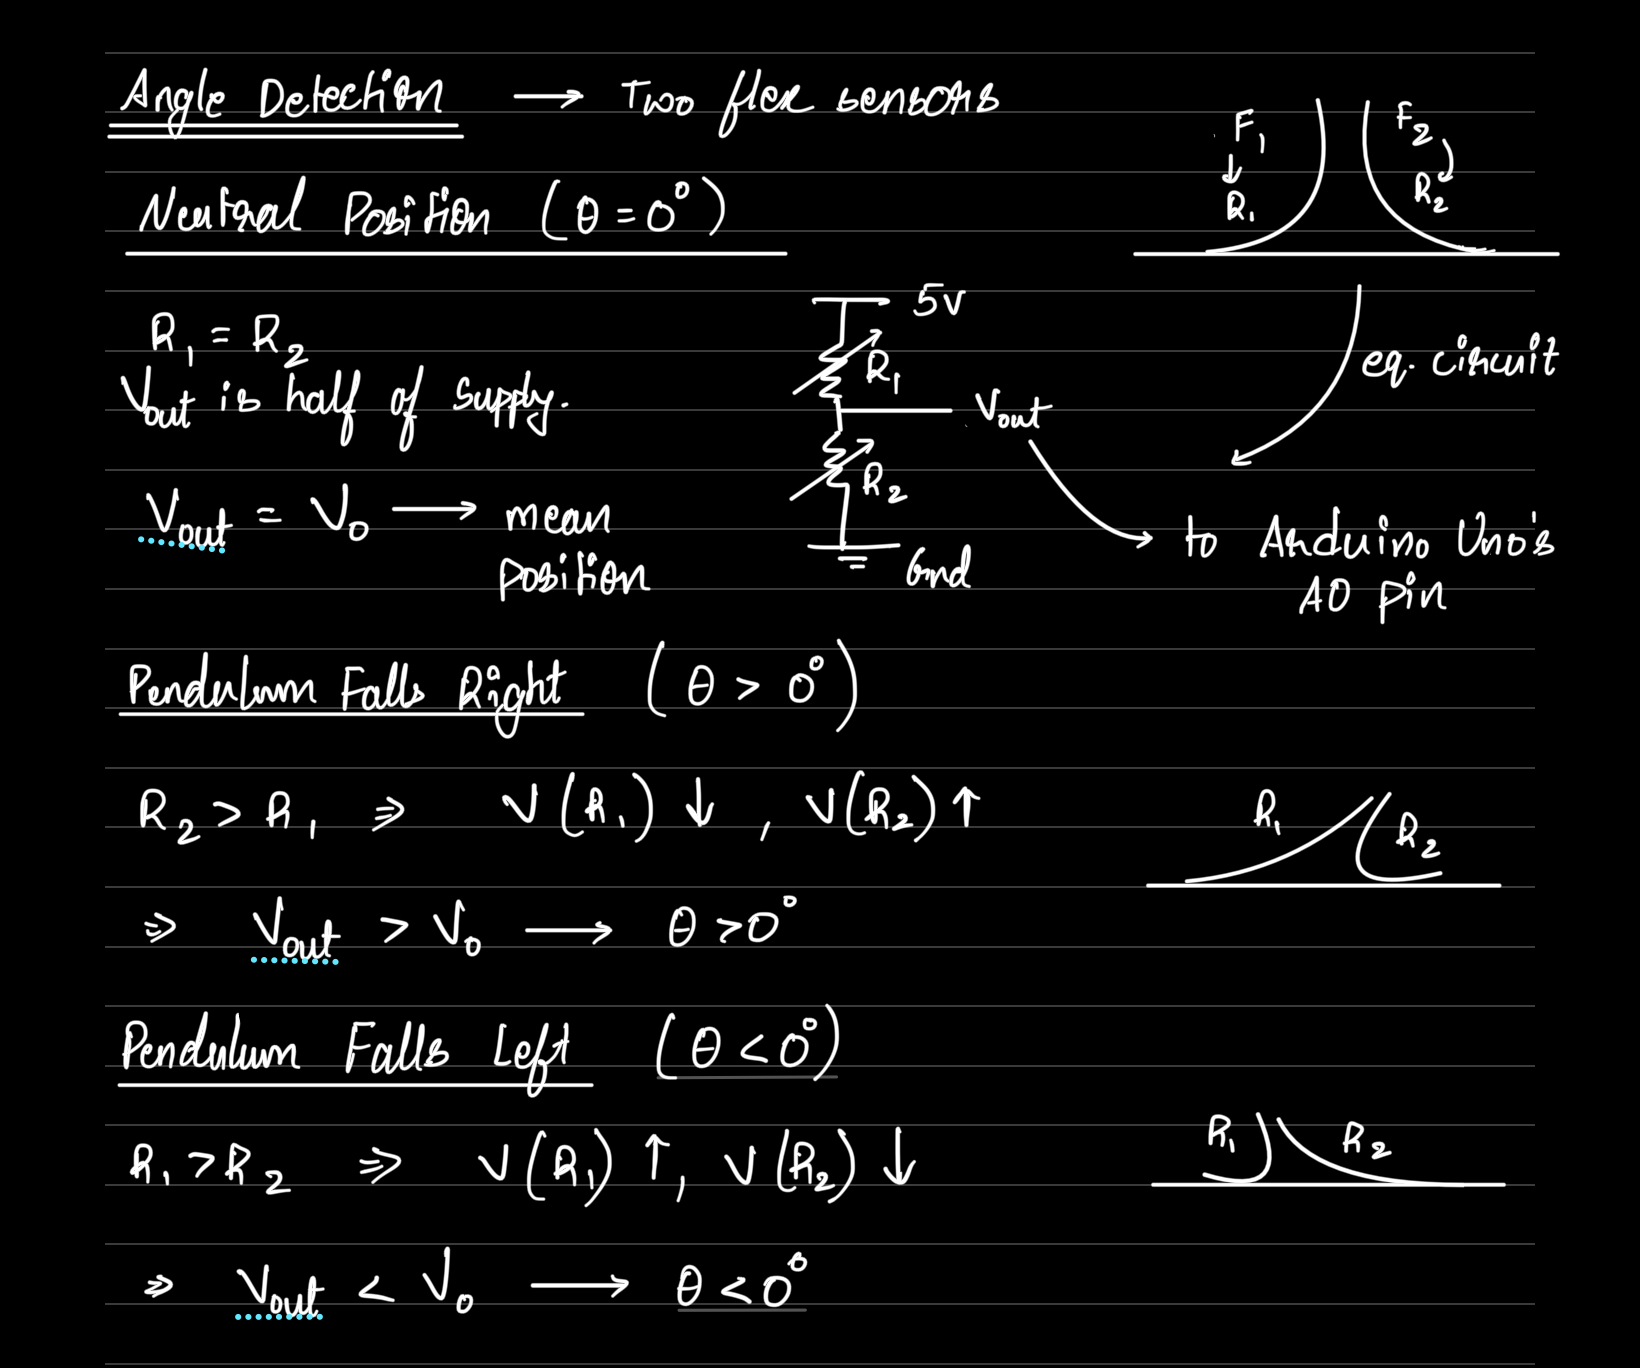 Angle Detection → Two flex sensors
F1 ↓ R1
F2 R2
Neutral Position (θ = 0°)
R1 = R2
Vout is half of supply.
Vout = V0 → mean position
5V
R1
Vout
R2
Gnd
eq. circuit
to Arduino Uno's
A0 pin
Pendulum Falls Right (θ > 0°)
R2 > R1 ⇒ V(R1) ↓ , V(R2) ↑
R1 R2
⇒ Vout > V0 → θ > 0°
Pendulum Falls Left (θ < 0°)
R1 > R2 ⇒ V(R1) ↑, V(R2) ↓
R1 R2
⇒ Vout < V0 → θ < 0°